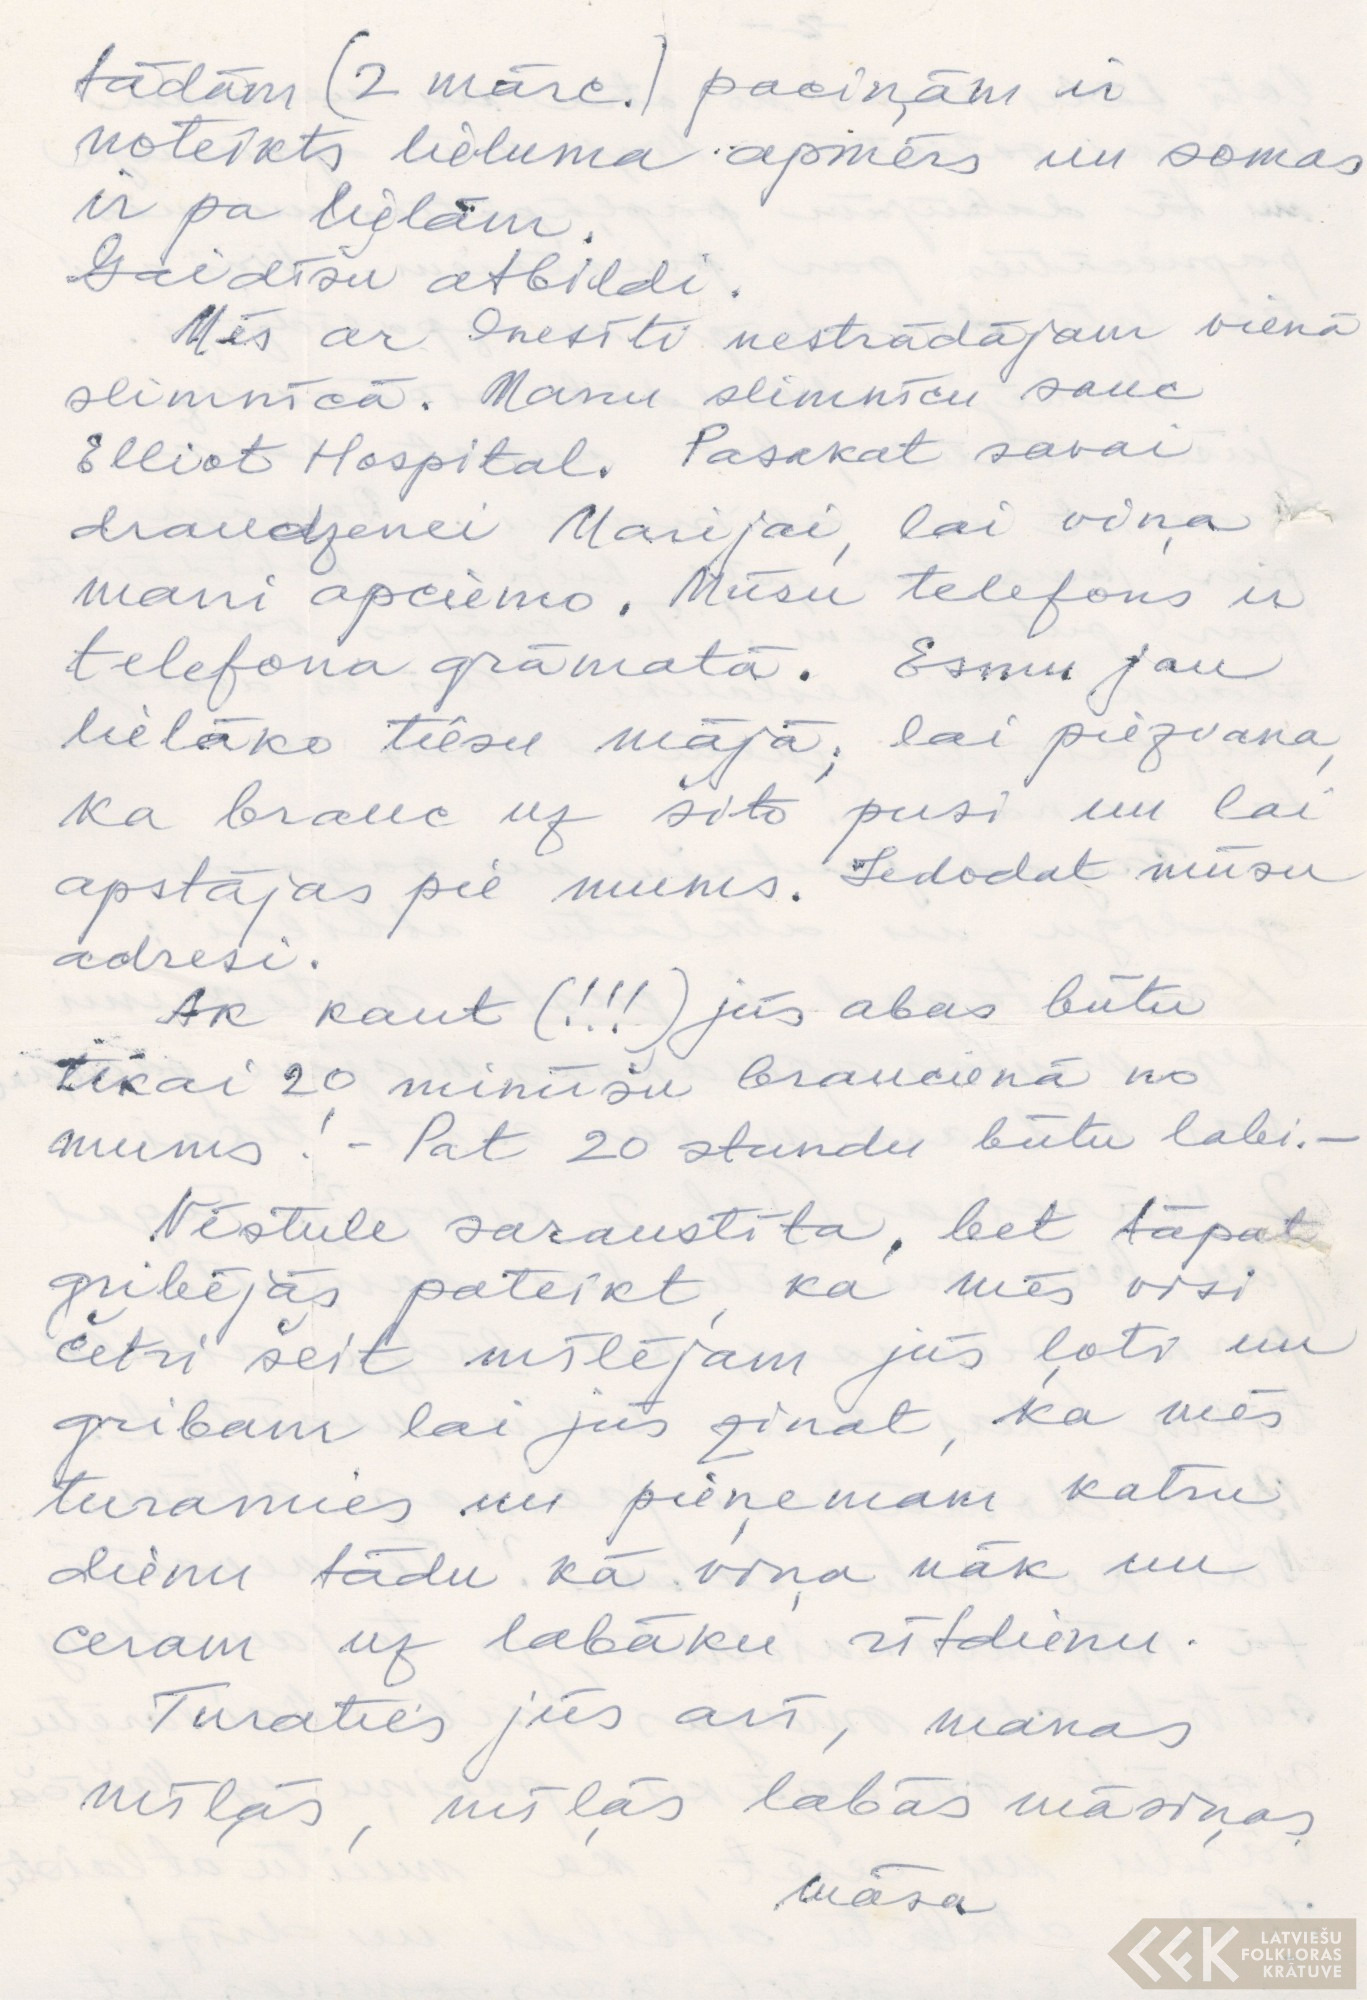 tādām (2 mārc.) paciņām ir
noteikts lieluma apmērs un somas
ir pa lielām.
Gaidīšu atbildi.
Mēs ar Inesīti nestrādājam vienā
slimnīcā. Manu slimnīcu sauc
Elliot Hospital. Pasakat savai
draudzenei Marijai, lai viņa
mani apciemo. Mūsu telefons ir
telefona grāmatā. Esmu jau
lielāko tiesu mājā; lai piezvana,
ka brauc uz šito pusi un lai
apstājas pie mums. Iedodat mūsu
adresi.
Ak kaut (!!!) jūs abas būtu
tikai 20 minūšu braucienā no
mums! - Pat 20 stundu būtu labi. -
Vēstule saraustīta, bet tāpat
gribējās pateikt, ka mēs visi
četri šeit mīlējam jūs ļoti un
gribam lai jūs zinat, ka mēs
turamies un pieņemam katru
dienu tādu kā viņa nāk un
ceram uz labāku rītdienu.
Turaties jūs arī, manas
mīļās, mīļās labās māsiņas.
māsa
LATVIEŠU
FOLKLORAS
KRĀTUVE